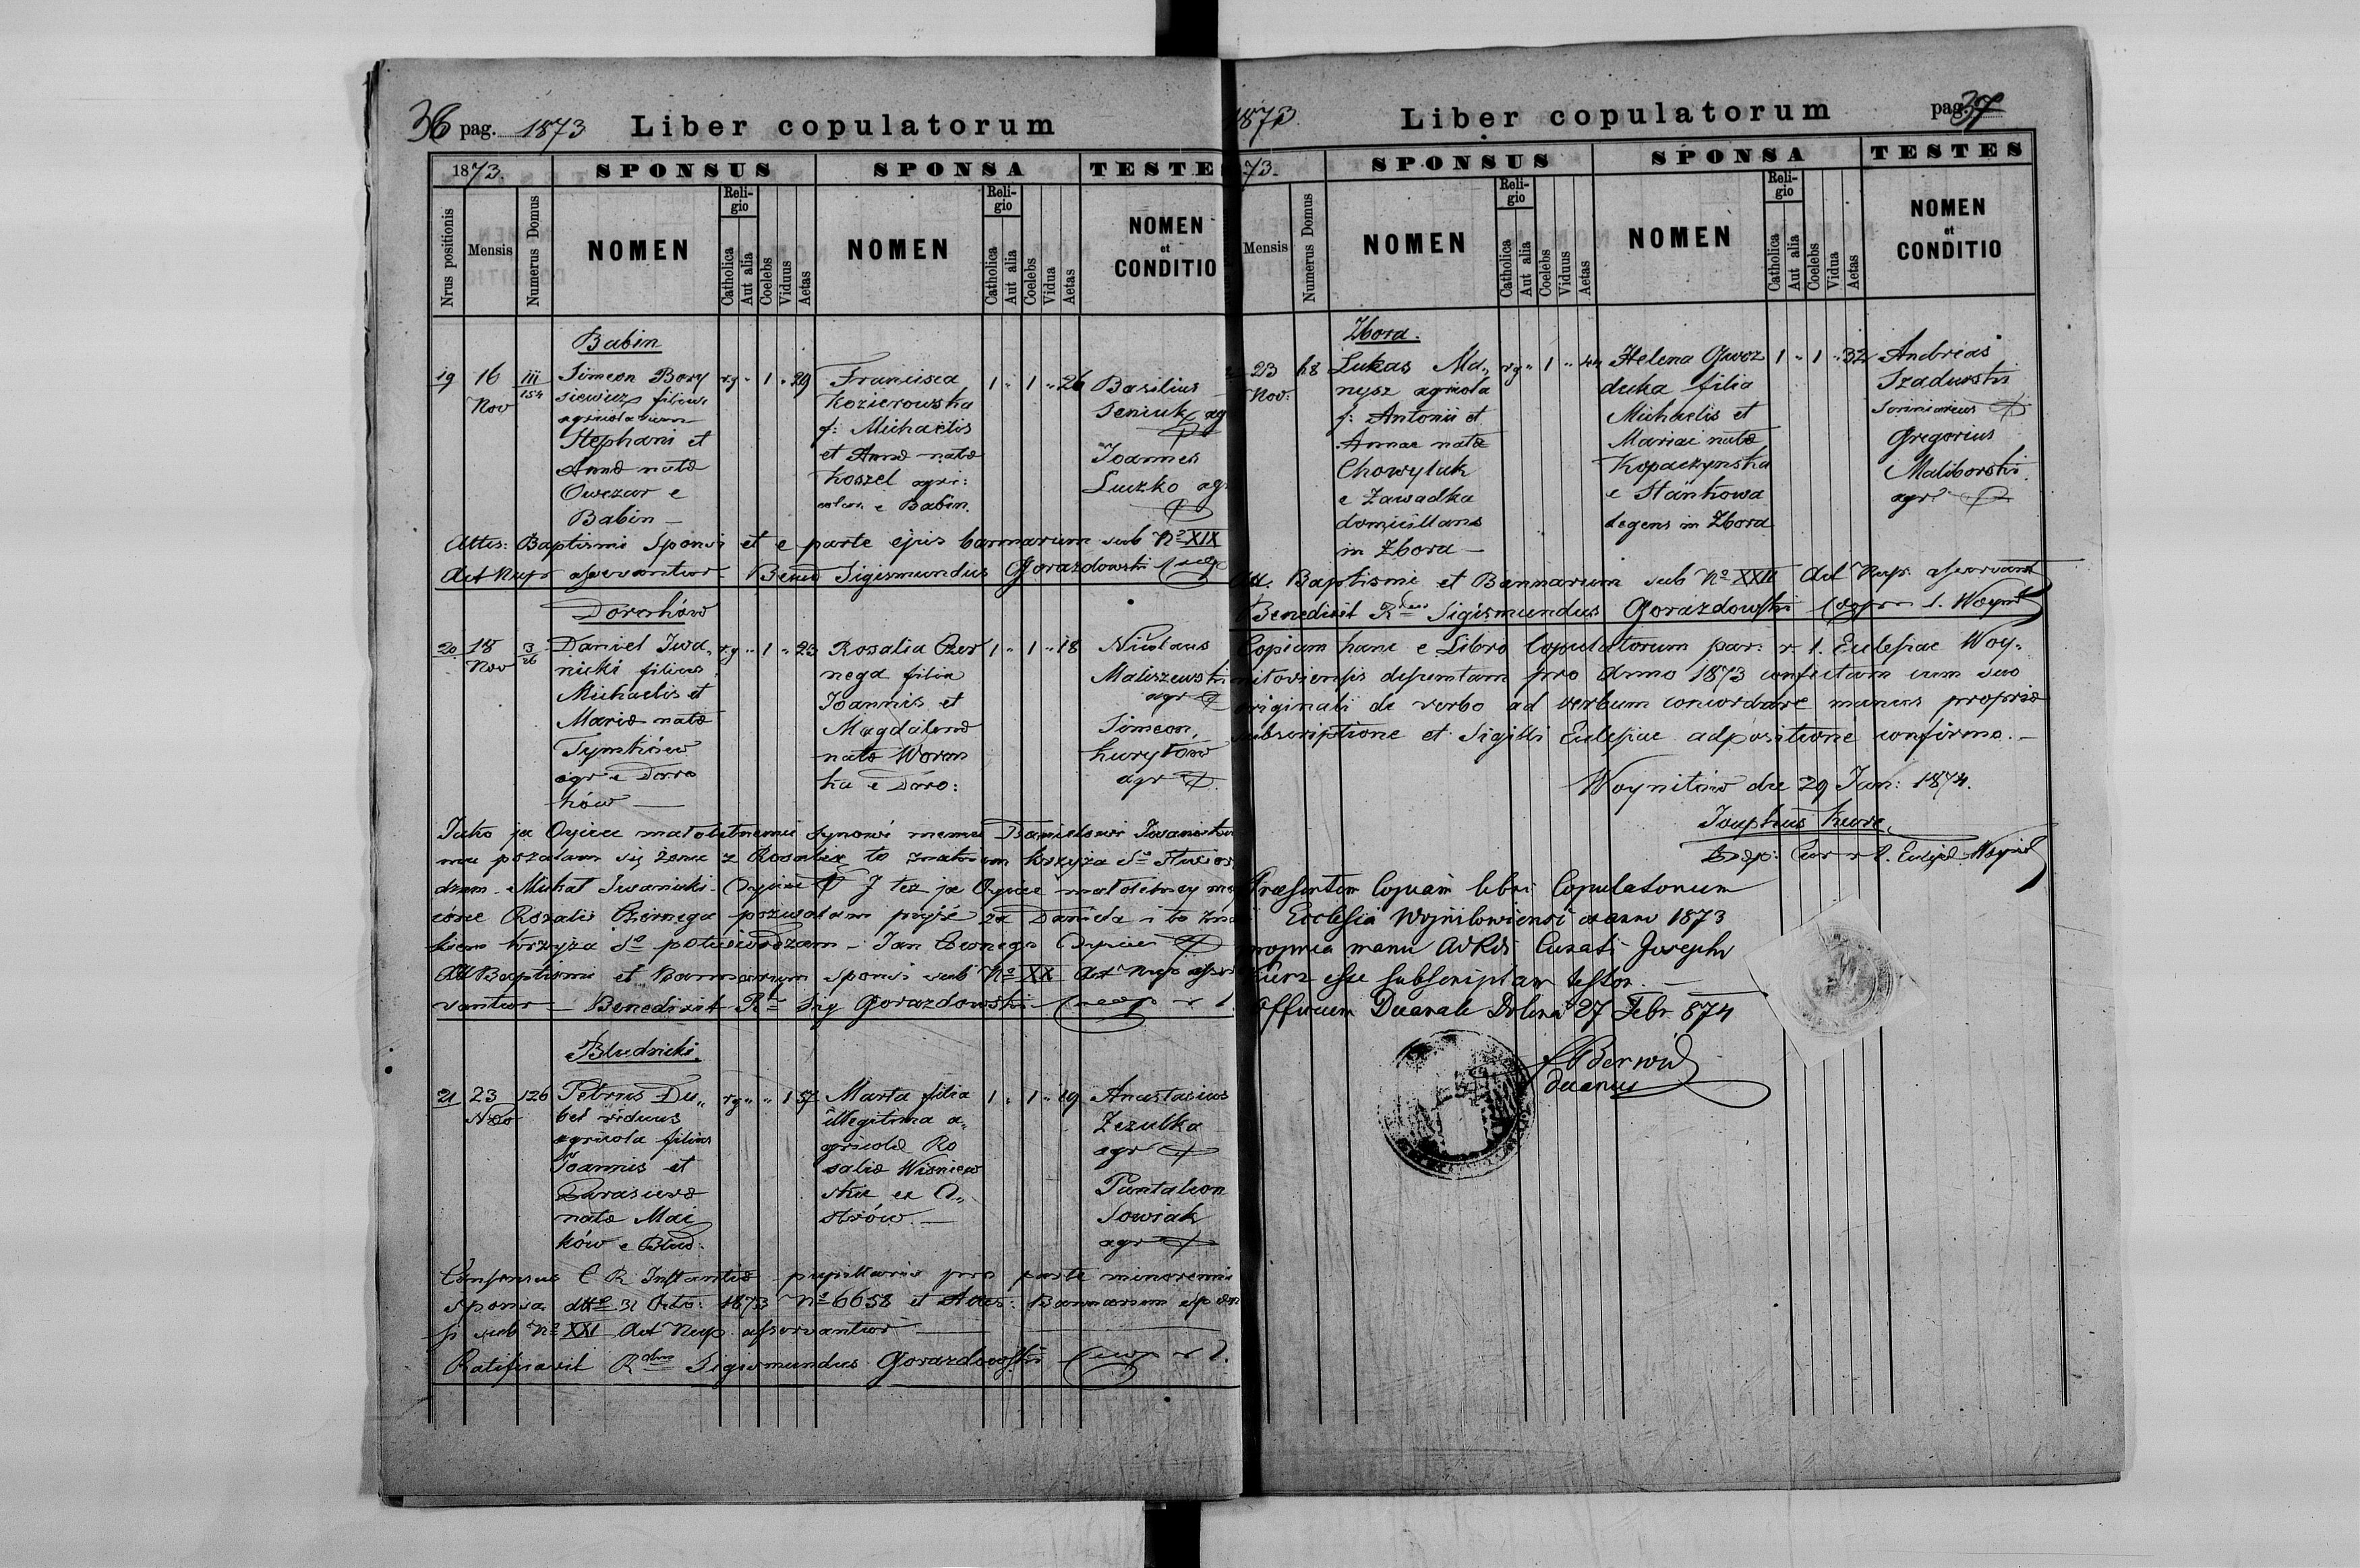 36 pag. 1873 Liber copulatorum
1873.
SPONSUS
SPONSA
TESTE
Nrus positionis
Mensis
Numerus Domus
NOMEN
Reli-
gio
Catholica
Aut alia
Coelebs
Viduus
Aetas
NOMEN
Reli-
gio
Catholica
Aut alia
Coelebs
Vidua
Aetas
NOMEN
et
CONDITIO
Babin
19
16
Nov
III
154
Simeon Bory
siewicz filius
agricolarum
Stephani et
Annæ natæ
Owczar e
Babin —
rg " 1 " 29
Francisca
Kozierowska
f: Michaelis
et Annæ natæ
Koszel agri:
colar. e Babin.
1 " 1 " 26
Basilius
Seniuk ag
Joannes
Luczko agr
Attes: Baptismi Sponsi et e parte ejus bannorum sub No XIX
Act Nupt asservantur Bened Sigismundus Gorazdowski
Dorohów
20
18
Nov
3
26
Daniel Iwa„
nicki filius
Michaelis et
Mariæ natæ
Tymków
agr e Doro
hów —
rg " 1 " 23
Rosalia Czer
nega filia
Joannis et
Magdalenæ
natæ Woron
ka e Doro:
1 " 1 " 18
Nicolaus
Maliszewski
agr
Simeon
Kurylow
agr
Jako ja Oyciec małoletniemu synowi memu Danielowi Iwanicku
mu pozwalam się żenić z Rosalią to znakiem krzyża So stwier
dzam Michał Iwanicki Oyciec I też ja Oyciec małoletney mo
córce Rozalii Czernega pozwalam pójść za Daniela i to zna
kiem krzyża So potwierdzam — Jan Czernega Oyciec
Att Baptismi et Bannorum sponsi sub No XX Act Nup asser
vantur — Benedixit Rd Sig Gorazdowski Coop r l
Bludniki
21
23
Nov
126
Petrus Du„
bel viduus
agricola filius
Joannis et
Parascevæ
natæ Mai
ków e Blud:
rg " " 1 57
Marta filia
illegitima a„
gricolæ Ro
saliæ Wisniew
skie ex O„
strów. —
1 " 1 " 19
Anastasius
Zezulka
agr
Pantaleon
Sowiak
agr
Consensus C R Instantiæ pupillaris pro parte minorennis
sponsæ dtto 31 Octo: 1873 No 6658 et Attes: Bannorum spon
si sub No XXI Act Nup. asservantur
Ratificavit Rdus Sigismundus Gorazdowski Coop r l.
1873 Liber copulatorum pag. 37
73.
SPONSUS
SPONSA
TESTES
Mensis
Numerus Domus
NOMEN
Reli-
gio
Catholica
Aut alia
Coelebs
Viduus
Aetas
NOMEN
Reli-
gio
Catholica
Aut alia
Coelebs
Vidua
Aetas
NOMEN
et
CONDITIO
Zbora.
23
Nov:
68
Lukas Ma„
nysz agricola
f: Antonii et
Annae natæ
Chowyluk
e Zawadka
domicilians
in Zbora —
rg " 1 " 44
Helena Gwoz
decka filia
Michaelis et
Mariae natæ
Kopaczynska
e Stankowa
degens in Zbora
1 " 1 " 32
Andreas
Szadurski
Gregorius
Maliborski
agr
Att. Baptismi et Bannorum sub No XXII Act Nup. asservant
Benedixit Rdus Sigismundus Gorazdowski Coopr r l. Woynil
Copiam hanc e Libro Copulatorum par: r l. Eclesiae Woy„
niloviensis desumtam pro Anno 1873 confectam cum suo
originali de verbo ad verbum concordare manus propriæ
subscriptione et Sigilli Eclesiae adpositione confirmo. —
Woyniłów die 29 Jan: 1874.
Josephus Kurz
Exp: Cur r l. Eclesiæ Woynil
Præsentem Copiam libri Copulatorum
Ecclesia Wojnilowiensi de anno 1873
propria manu AdRdi Curati Josephi
Kurz esse subscriptam testor. —
Officium Decanale Dolina 27 Febr 874
Berwid
Decanus